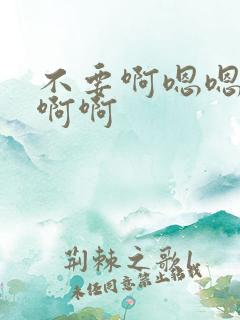 不要啊嗯嗯
啊啊
荆棘之歌1
未经同意禁止转载